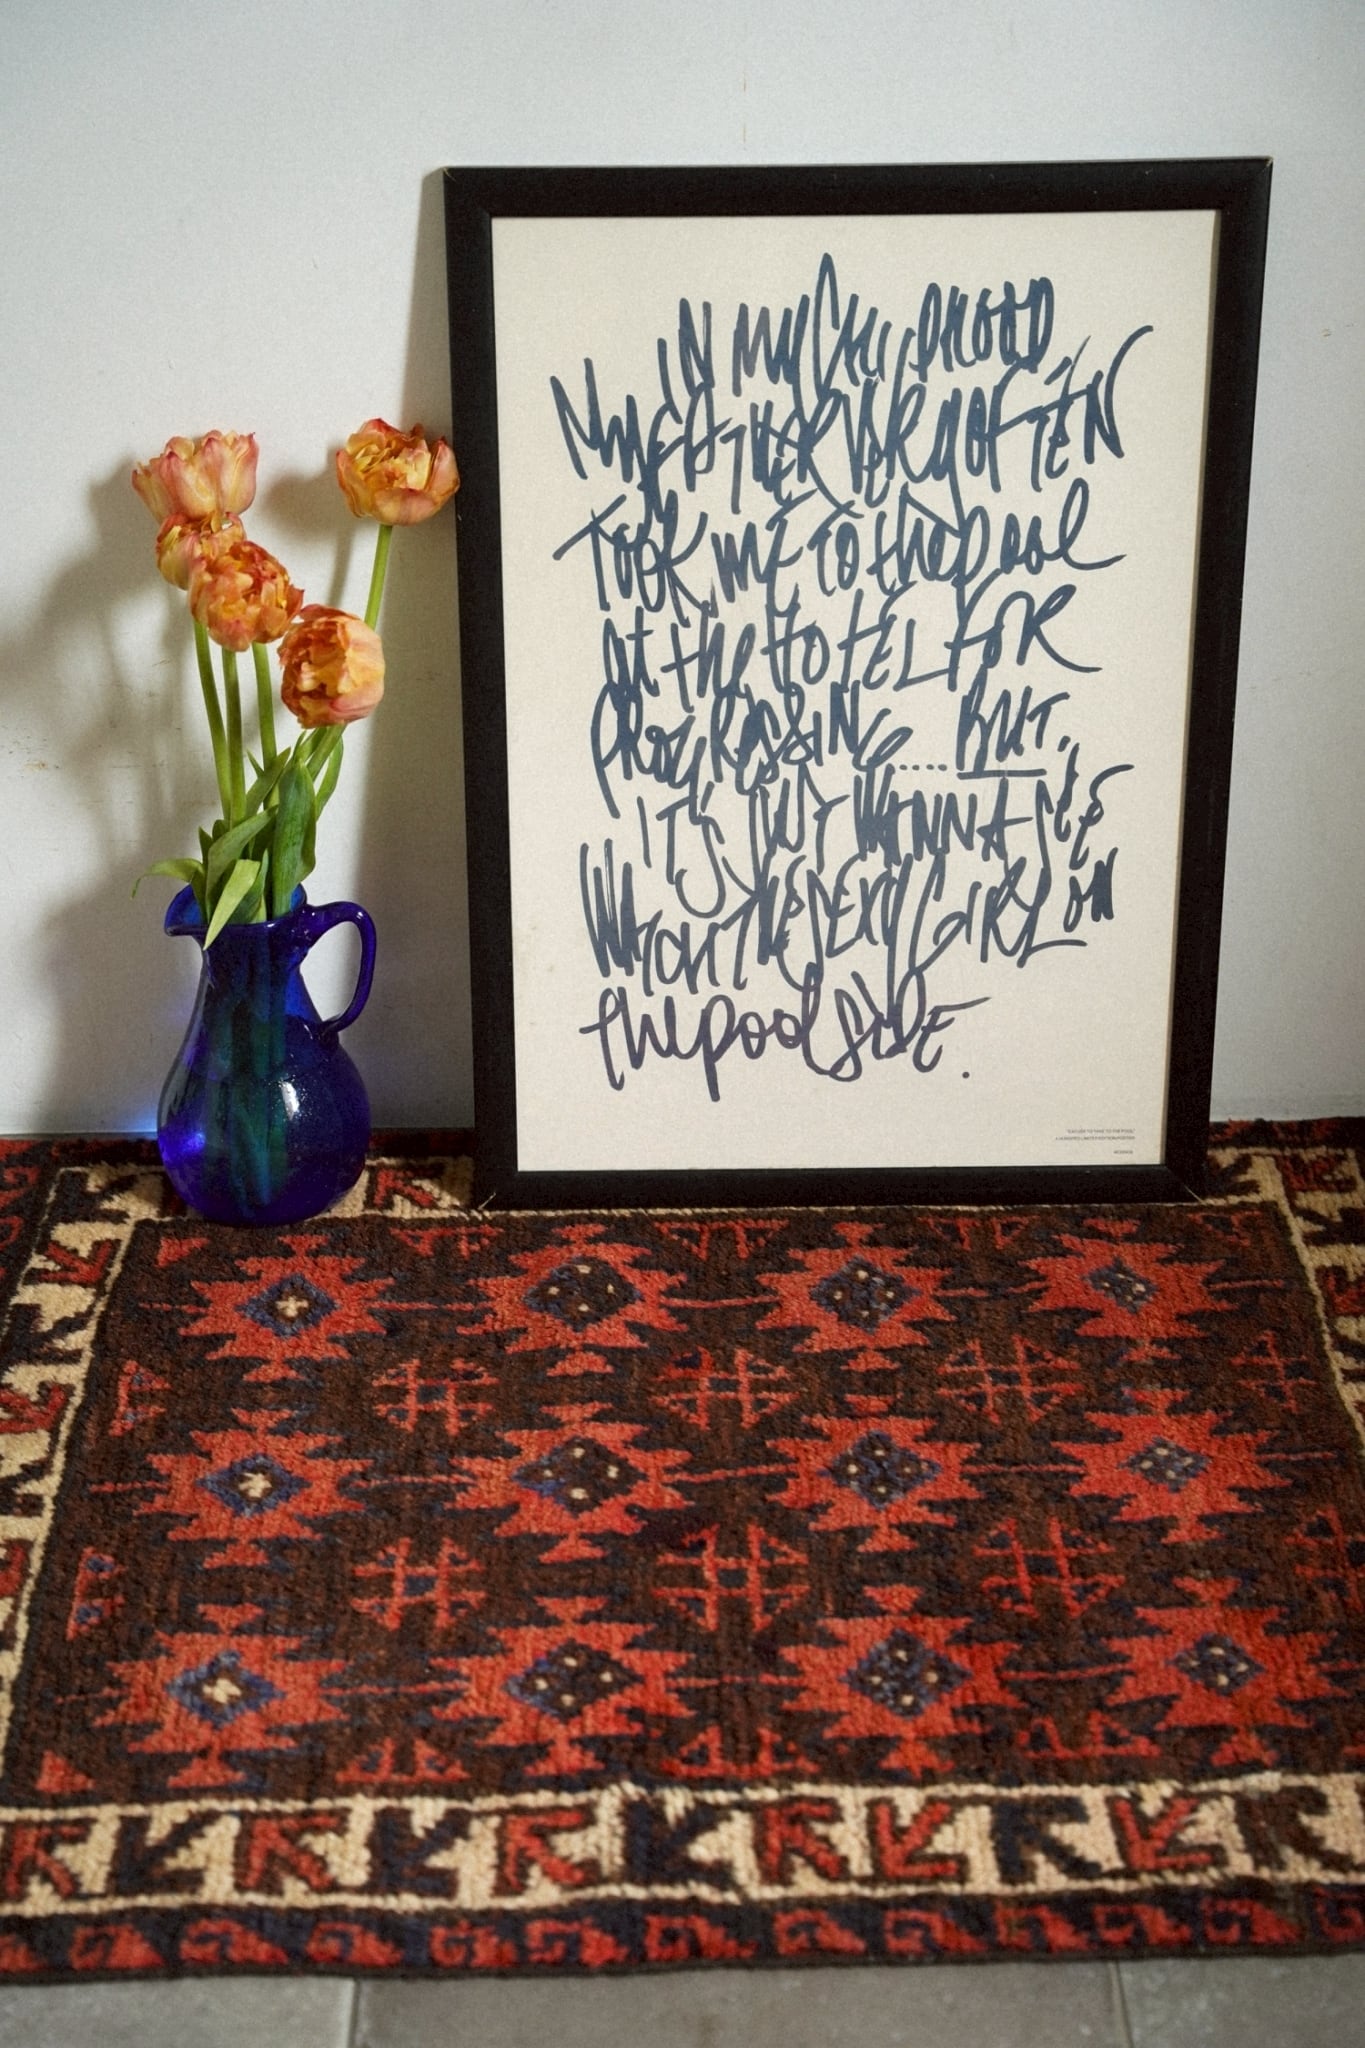 IN MY CHILDHOOD,
MY FATHER VERY OFTEN
TOOK ME TO the pool
At the HOTEL FOR
PROGRESSING .... BUT,
IT'S JUST WANNA SEE
WATCH THE SEXY GIRL ON
the pool SIDE.